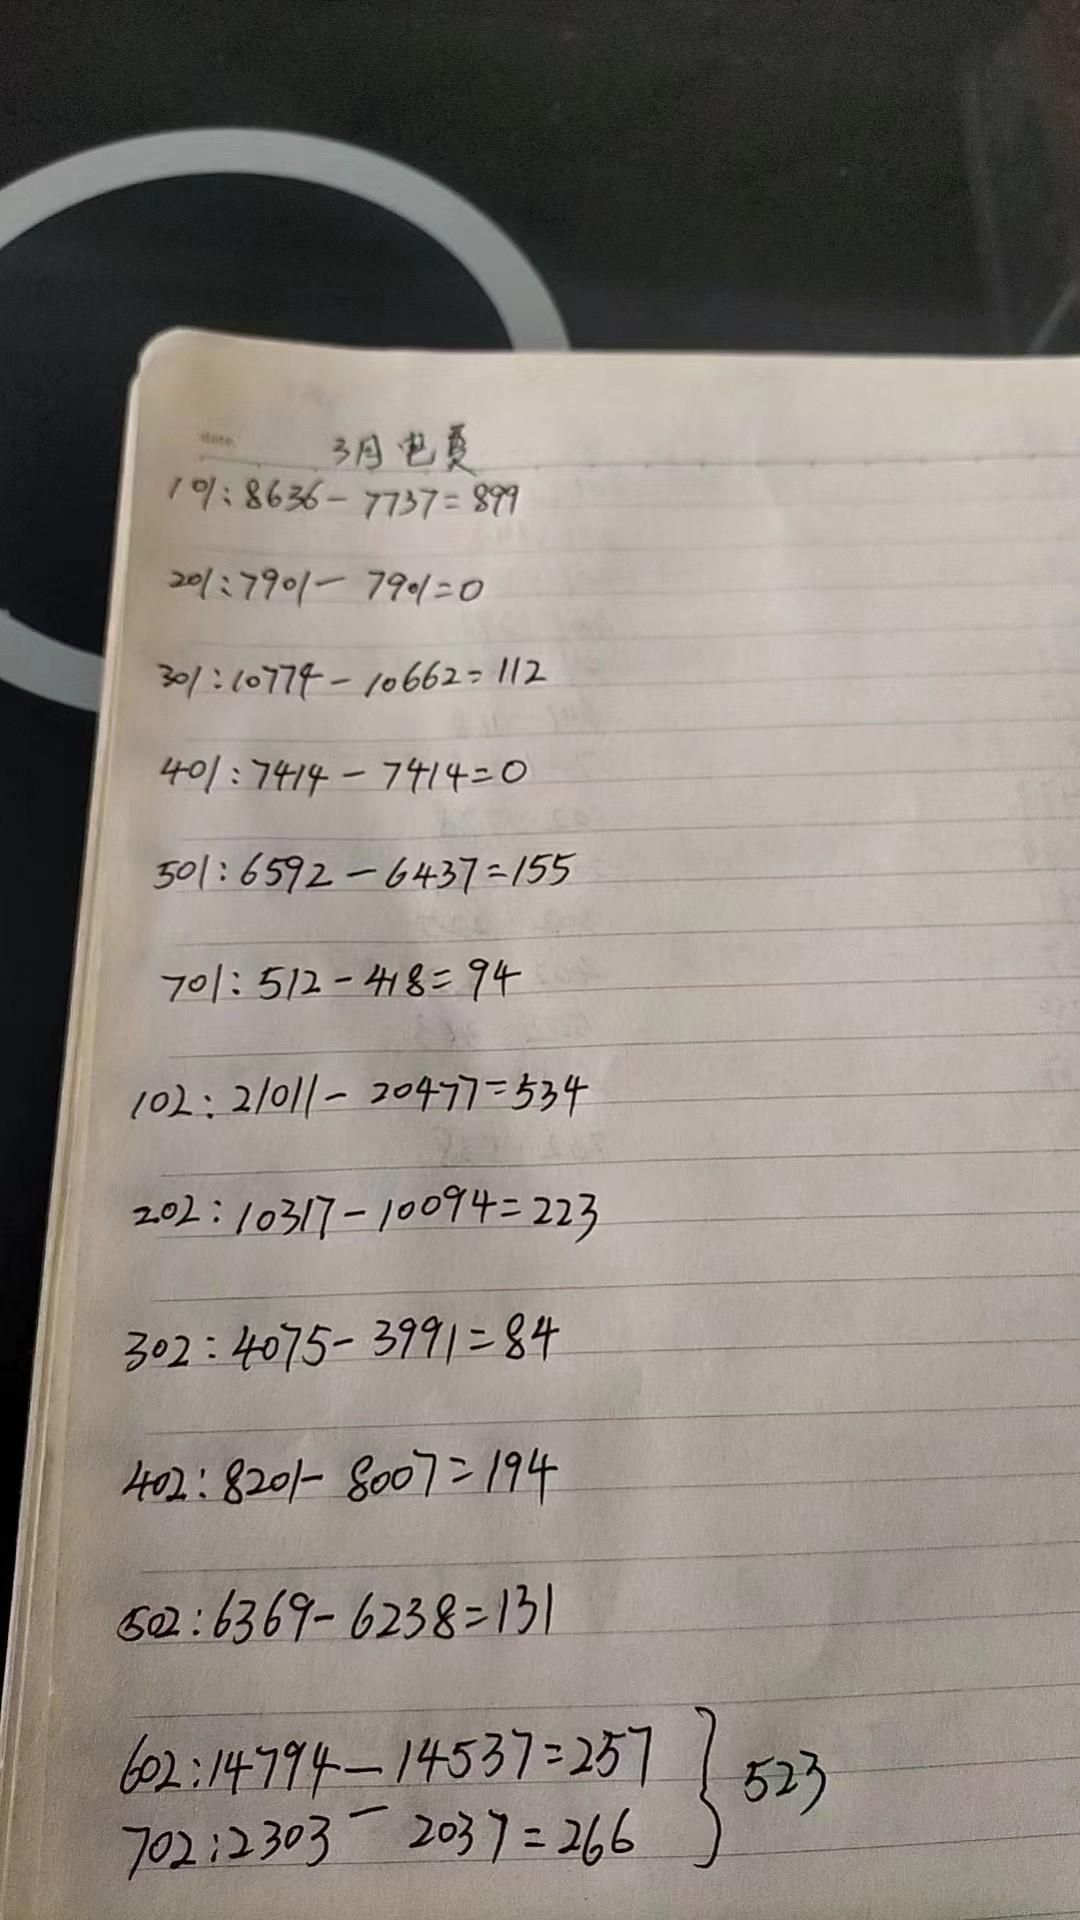 date.
3月电费
101:8636-7737=899
201:7901-7901=0
301:10774-10662=112
401:7414-7414=0
501:6592-6437=155
701:512-418=94
102:21011-20477=534
202:10317-10094=223
302:4075-3991=84
402:8201-8007=194
502:6369-6238=131
602:14794-14537=257
702:2303-2037=266
} 523